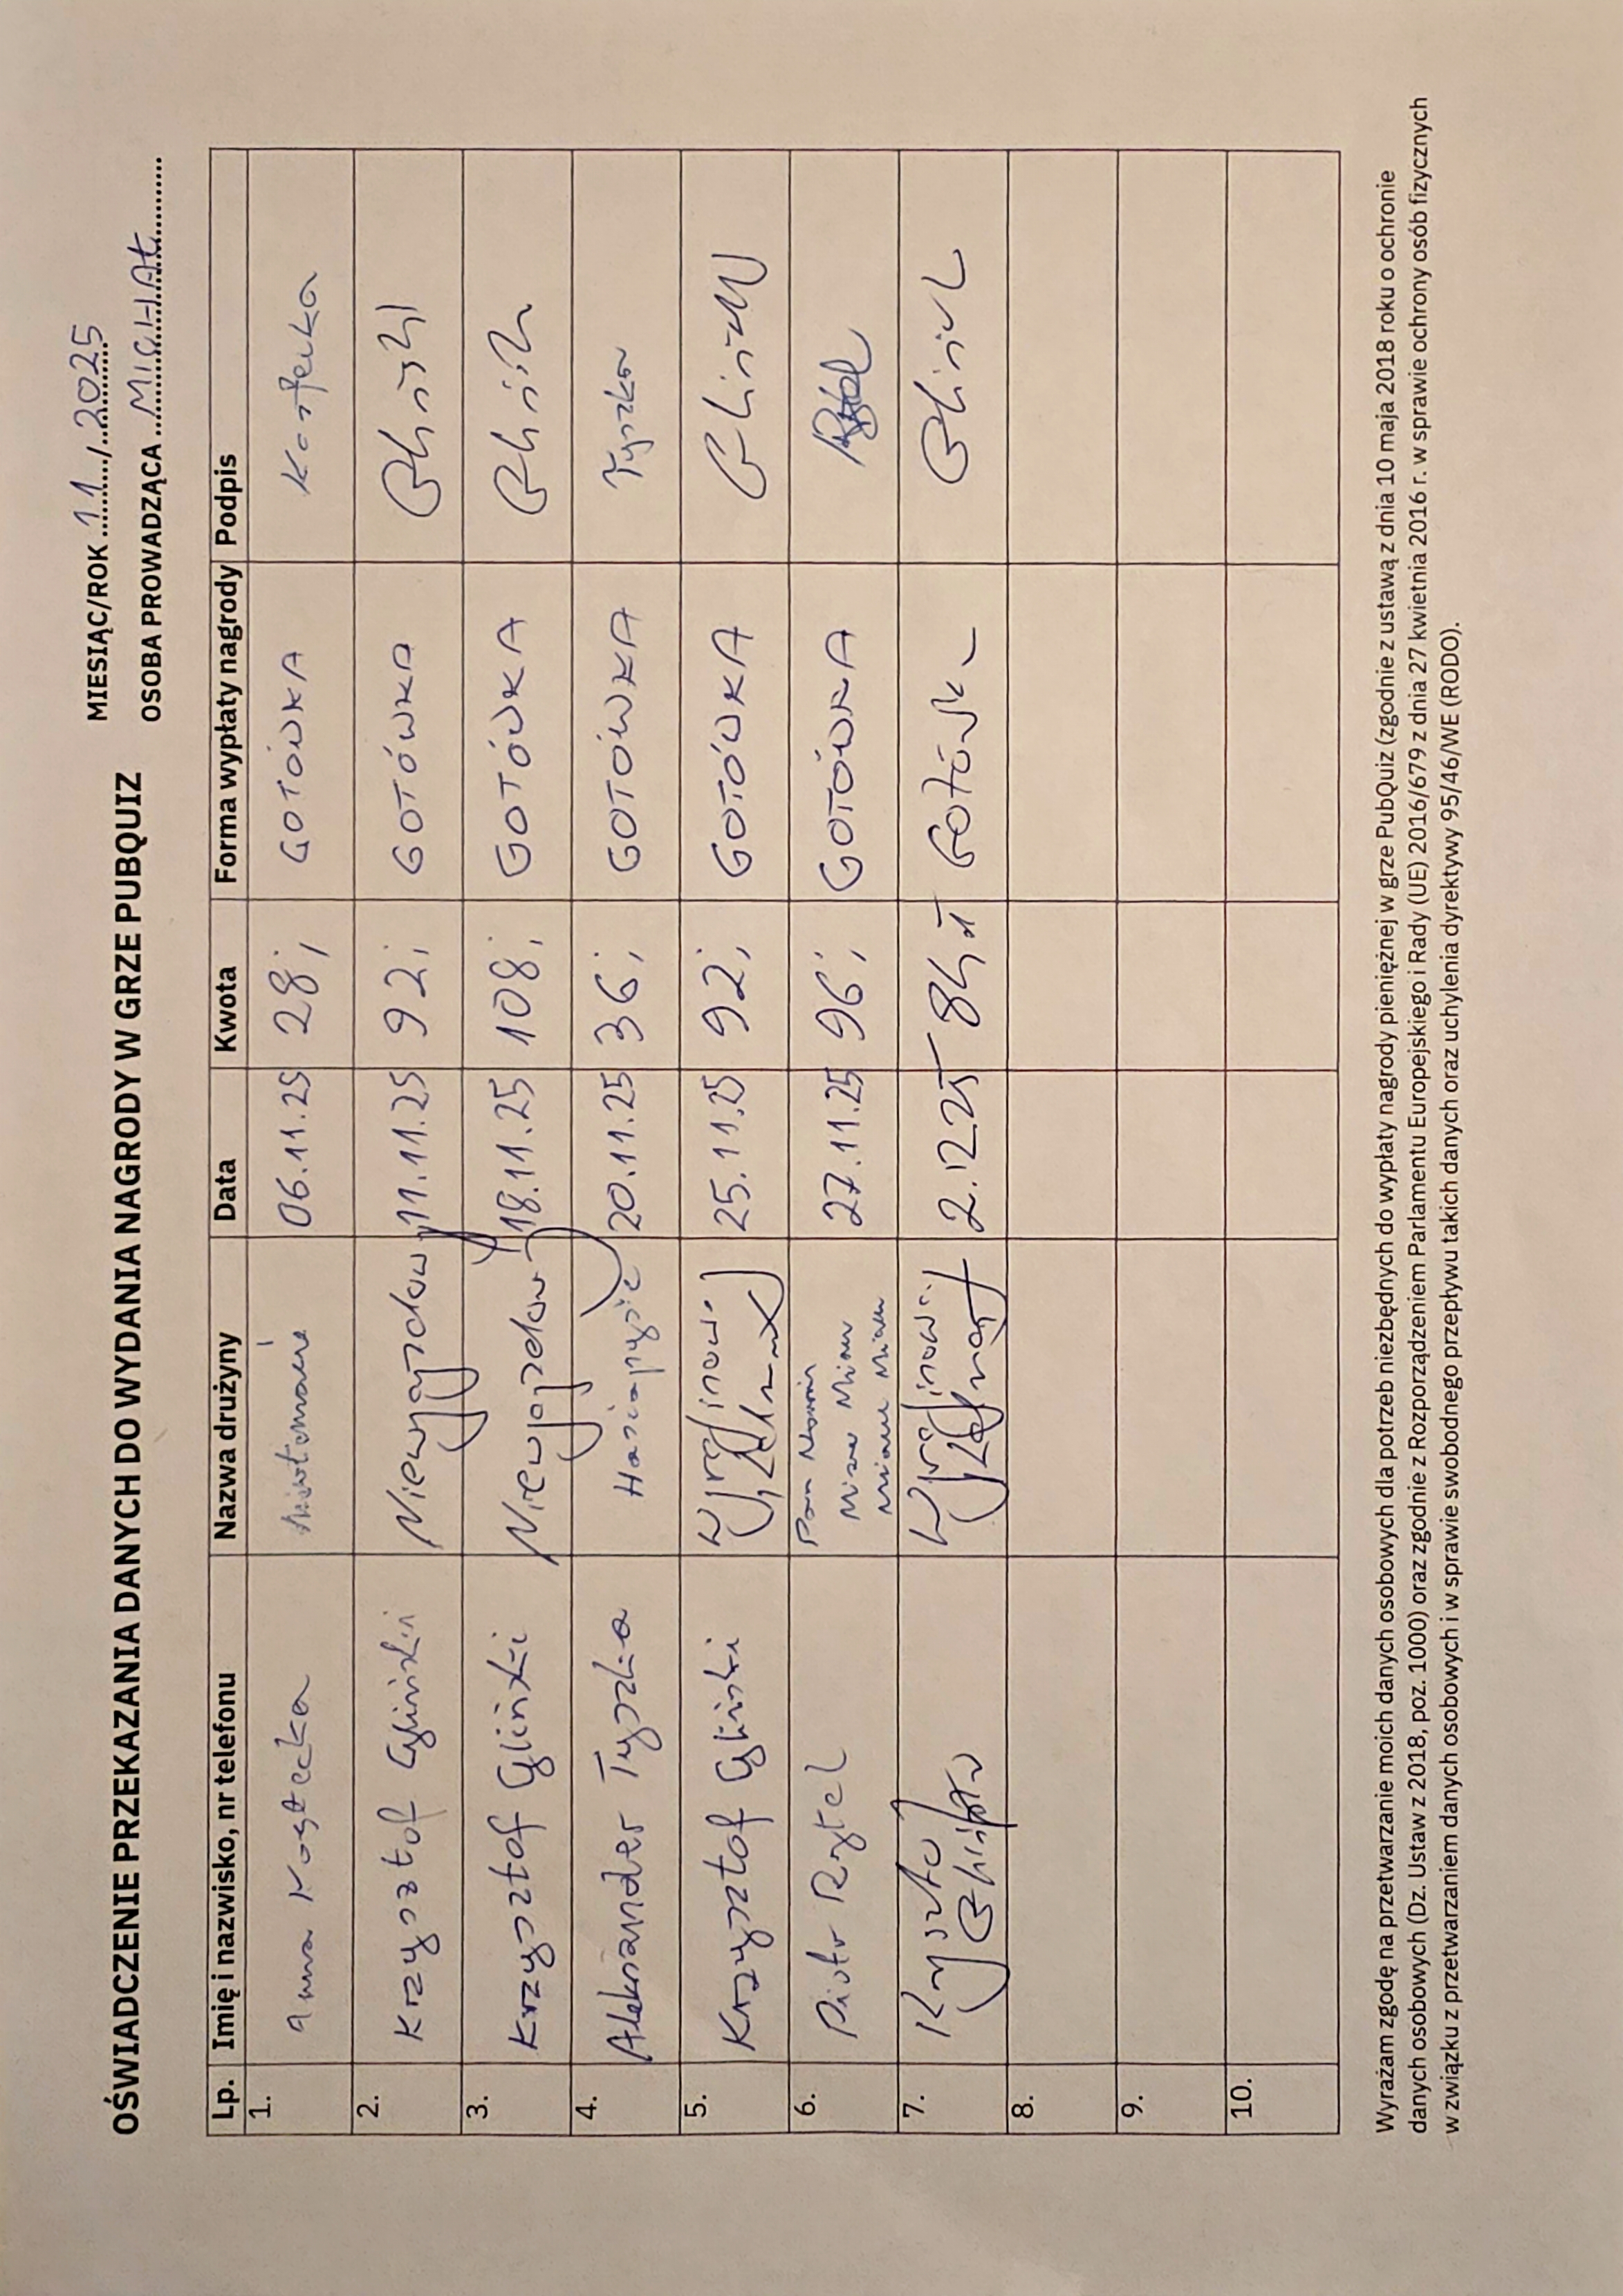 OŚWIADCZENIE PRZEKAZANIA DANYCH DO WYDANIA NAGRODY W GRZE PUBQUIZ
MIESIĄC/ROK 11 / 2025
OSOBA PROWADZĄCA MICHAŁ
Lp. Imię i nazwisko, nr telefonu Nazwa drużyny Data Kwota Forma wypłaty nagrody Podpis
1. Anna Kostecka 06.11.25 28,- GOTÓWKA Kostecka
2. Krzysztof Gliński 11.11.25 92,- GOTÓWKA
3. Krzysztof Gliński 18.11.25 108,- GOTÓWKA
4. Aleksander Tyszka 20.11.25 36,- GOTÓWKA Tyszka
5. Krzysztof Gliński 25.11.25 92,- GOTÓWKA
6. Piotr Rytel Miau Miau Miau Miau 27.11.25 96,- GOTÓWKA
7. Krzysztof Gliński 2.12.25 84 zł Gotówka
8.
9.
10.
Wyrażam zgodę na przetwarzanie moich danych osobowych dla potrzeb niezbędnych do wypłaty nagrody pieniężnej w grze PubQuiz (zgodnie z ustawą z dnia 10 maja 2018 roku o ochronie
danych osobowych (Dz. Ustaw z 2018, poz. 1000) oraz zgodnie z Rozporządzeniem Parlamentu Europejskiego i Rady (UE) 2016/679 z dnia 27 kwietnia 2016 r. w sprawie ochrony osób fizycznych
w związku z przetwarzaniem danych osobowych i w sprawie swobodnego przepływu takich danych oraz uchylenia dyrektywy 95/46/WE (RODO).